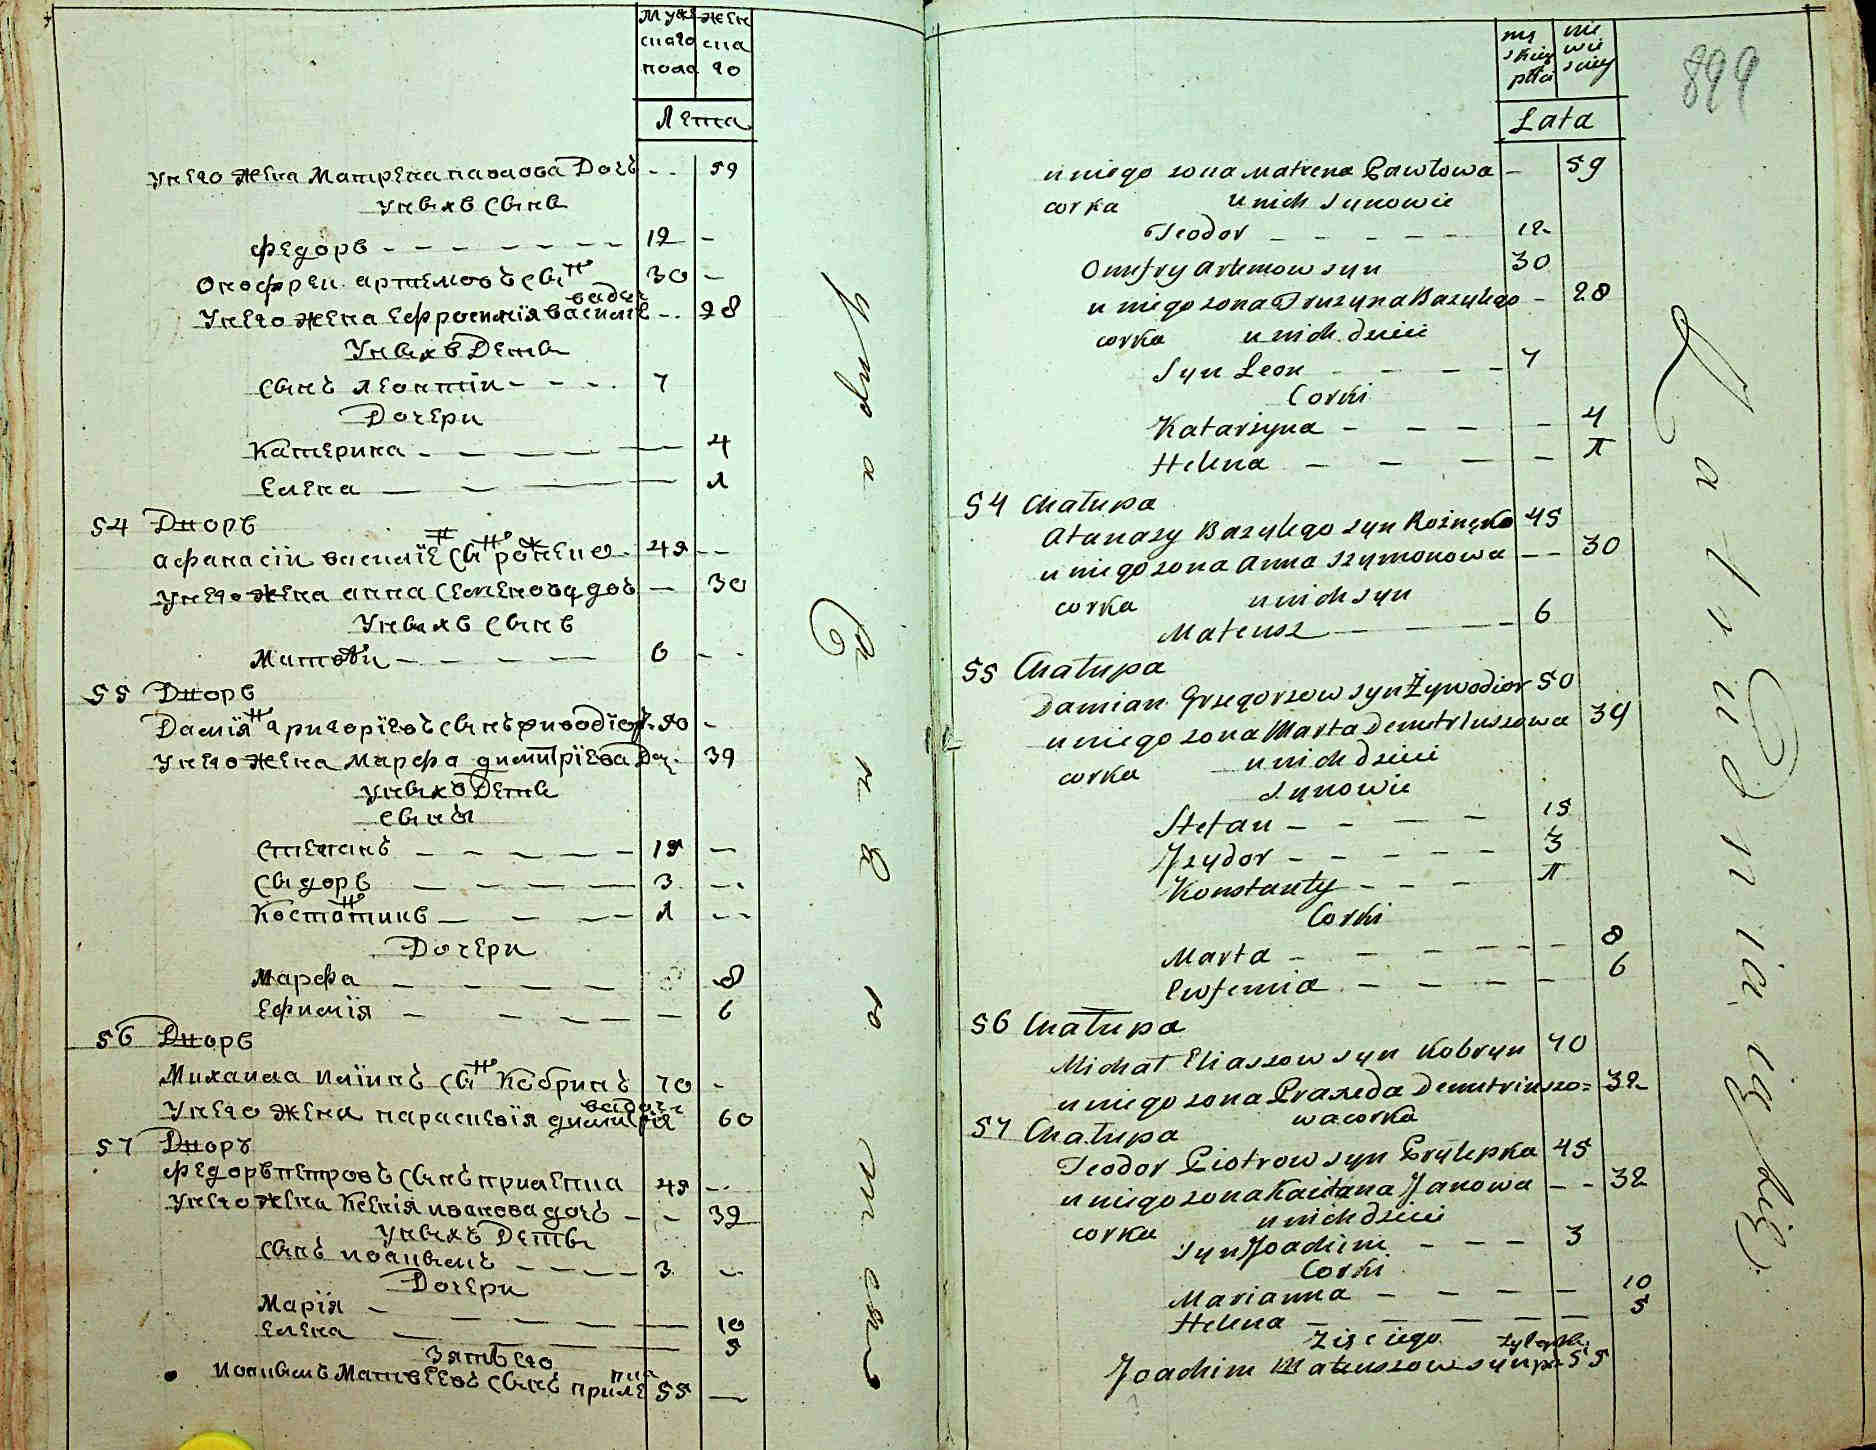 Муже
скаго
пола
женска
го
Лета
У него жена Матрена павлова Дочь - - 59
У них Сынв
Федорв - - - - - - - 12 -
Онофреи артемовъ Сынъ 30 -
У него жена Ефросимія василиева доч - - 28
У них в Детв
Сынъ леонтіи - - - - 7
Дочери
Катерина - - - - - 4
Елена - - - - 1
54 Дворв
афанасіи василіев Сынъ роженко 45 - -
У него жена анна Семенова доч - 30
У них в Сынв
Матвѣи - - - - - 6 - -
55 Дворв
Даміянъ григоріевъ Сынъ живодіор 50 -
У него жена Марфа димитріева Доч - 39
У них Дети
Сыны
Степанъ - - - - - 15 -
Сыдорв - - - - - 3 - -
Костантинв - - - - 1 - -
Дочери
Марфа - - - - - 8
Ефимія - - - - - 6
56 Дворв
Михаила иліинъ Сынъ Кобринъ 70 -
У него жена параскевія димитріева доч 60
57 Дворъ
Федорв петровъ Сынъ прилепка 45 - -
У него жена Ксенія иванова дочъ - - 32
У них Дети
Сынъ иоакимъ - - - - 3 -
Дочери
Марія - - - - - 10
Елена - - - 5
Зять его
иоакимъ Матвѣевъ Сынъ прилепка 55 -
męskiey płci
niewiesciey
899
Lata
u niego zona Matrena Pawłowa - 59
corka u nich synowie
Teodor - - - - - 12
Onufry Artemow syn 30
u niego zona Fruzyna Bazylego - 28
corka u nich dzieci
Syn Leon - - - - 7
Corki
Katarzyna - - - - 4
Helena - - - - 1
54 Chałupa
Atanazy Bazylego syn Rożenko 45
u niego zona Anna Szymonowa - - 30
corka u nich syn
Mateusz - - - - - 6
55 Chałupa
Damian Grzegorzow syn Żywodior 50
u niego zona Marta Demetriuszowa 39
corka u nich dzieci
synowie
Stefan - - - - 15
Jzydor - - - - - 3
Konstanty - - - 1
Corki
Marta - - - - - - 8
Eufemia - - - - - 6
56 Chałupa
Michał Eliaszow syn Kobryn 70
u niego zona Praxeda Demetriuszo= 32
wa corka
57 Chałupa
Teodor Piotrow syn Prylepka 45
u niego zona Kaitana Janowa - - 32
corka u nich dzieci
syn Joachim - - - 3
Corki
Marianna - - - - 10
Helena - - - - - 5
Zięć iego
Joachim Mateuszow syn prylepka 55